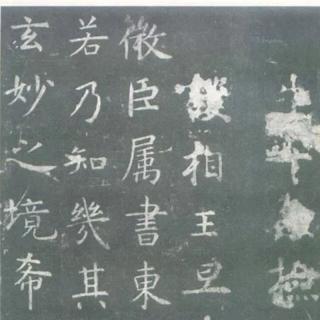 撫
相王旦
徵臣属書東
若乃知幾其
玄妙之境希